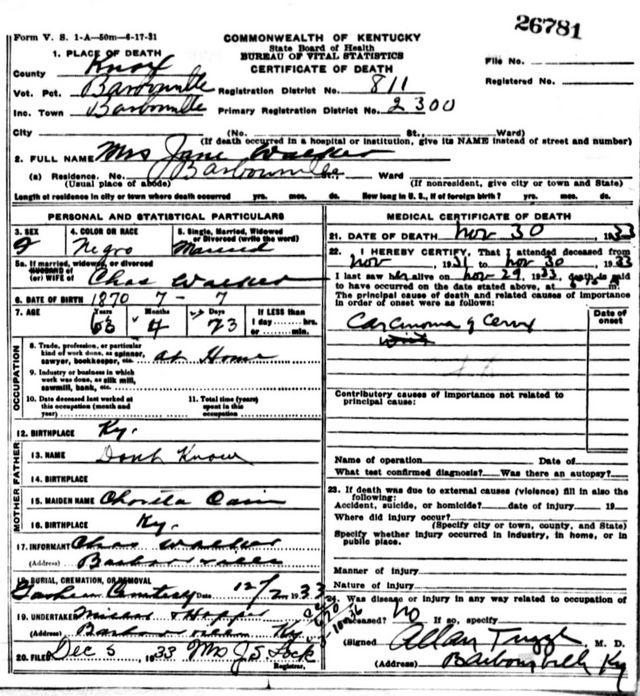 26781
Form V. S. 1-A—50m—6-17-31
COMMONWEALTH OF KENTUCKY
State Board of Health
BUREAU OF VITAL STATISTICS
CERTIFICATE OF DEATH
1. PLACE OF DEATH
County Knox
File No.
Vot. Pct. Barbourville Registration District No. 811
Registered No.
Inc. Town Barbourville Primary Registration District No. 2300
City (No. St., Ward)
(If death occurred in a hospital or institution, give its NAME instead of street and number)
2. FULL NAME Mrs Jane Walker
(a) Residence. No. Barbourville Ward
(Usual place of abode) (If nonresident, give city or town and State)
Length of residence in city or town where death occurred yrs. mos. ds. How long in U. S., if of foreign birth? yrs. mos. ds.
PERSONAL AND STATISTICAL PARTICULARS
3. SEX 4. COLOR OR RACE 5. Single, Married, Widowed
or Divorced (write the word)
F Negro Married
5a. If married, widowed, or divorced
HUSBAND of
(or) WIFE of Chas Walker
6. DATE OF BIRTH 1870 7 - 7
7. AGE Years Months Days If LESS than
1 day hrs.
or min.
63 4 23
OCCUPATION
8. Trade, profession, or particular
kind of work done, as spinner,
sawyer, bookkeeper, etc. at Home
9. Industry or business in which
work was done, as silk mill,
sawmill, bank, etc.
10. Date deceased last worked at
this occupation (month and
year)
11. Total time (years)
spent in this
occupation
12. BIRTHPLACE Ky.
FATHER
13. NAME Dont Know
14. BIRTHPLACE
MOTHER
15. MAIDEN NAME
16. BIRTHPLACE Ky.
17. INFORMANT Chas Walker
(Address) Barbourville
18. BURIAL, CREMATION, OR REMOVAL
Cemetery Date 12/2 1933
19. UNDERTAKER Hopper
(Address) Barbourville Ky
20. FILED Dec 5 1933 Mrs J S Lock
Registrar.
MEDICAL CERTIFICATE OF DEATH
21. DATE OF DEATH Nov 30, 1933
22. I HEREBY CERTIFY, That I attended deceased from
Nov, 1931 to Nov 30, 1933
I last saw her alive on Nov-29, 1933, death is said
to have occurred on the date stated above, at m.
The principal cause of death and related causes of importance
in order of onset were as follows:
Date of
onset
Carcinoma of Cervix
Contributory causes of importance not related to
principal cause:
Name of operation Date of
What test confirmed diagnosis? Was there an autopsy?
23. If death was due to external causes (violence) fill in also the
following:
Accident, suicide, or homicide? date of injury 19
Where did injury occur?
(Specify city or town, county, and State)
Specify whether injury occurred in industry, in home, or in
public place.
Manner of injury
Nature of injury
24. Was disease or injury in any way related to occupation of
deceased? No If so, specify
(Signed Allan Tuggle M. D.
(Address) Barbourville Ky